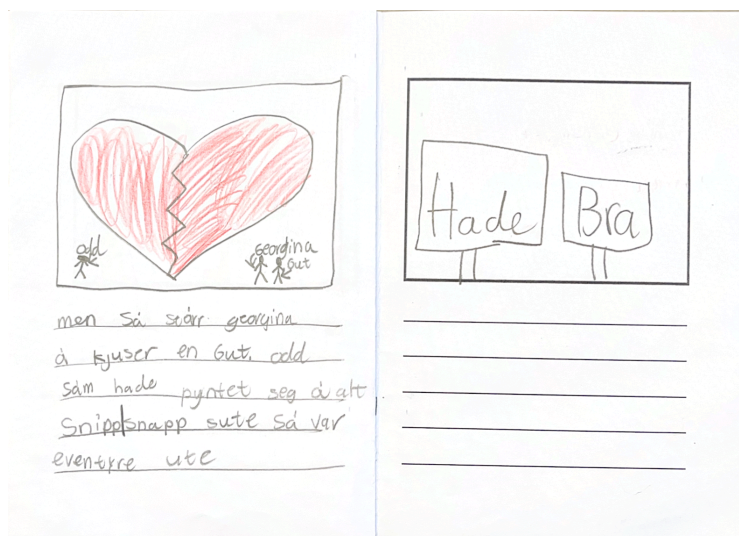 odd
Georgina
Gut
men så stårr georgina
å kjuser en Gut. odd
såm hade pyntet seg å alt
Snipp snapp sute så var
eventyre ute
Hade
Bra